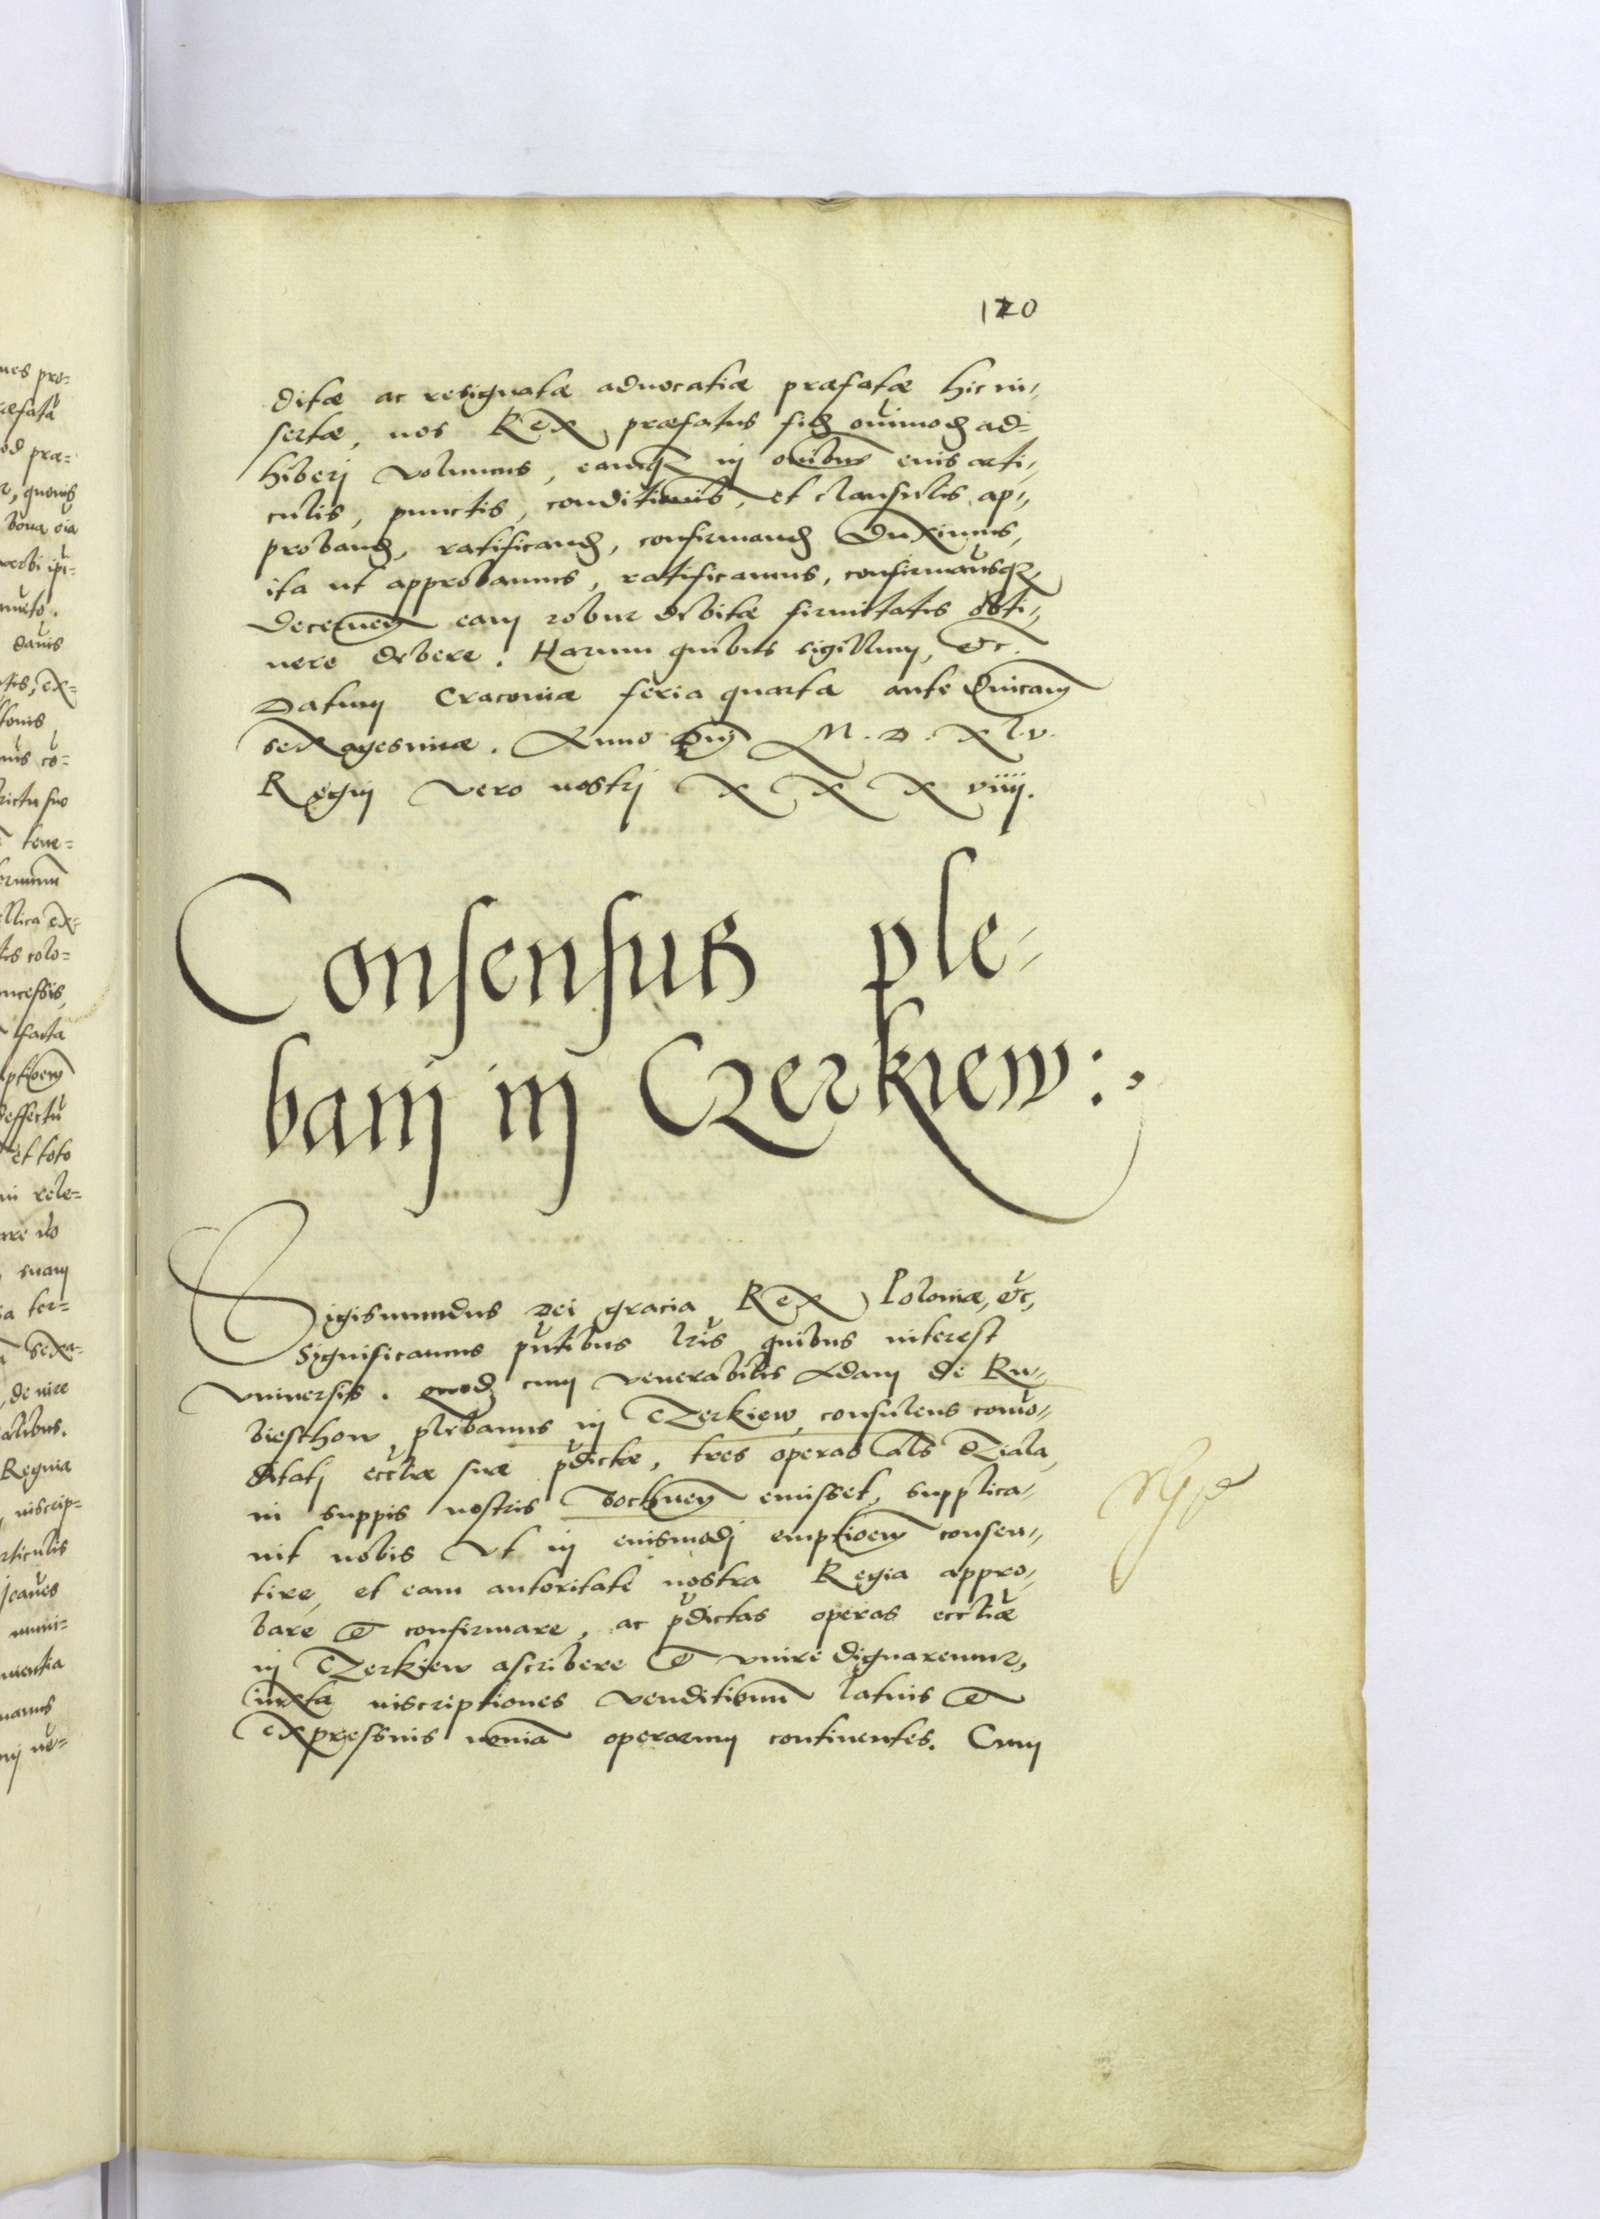 120
ditæ ac resignatæ advocatiæ præfatæ hic in-
sertæ, nos Rex præfatus fidẽ omnimodã ad-
hiberj volumus, eamq̃ in omibus eius arti-
culis, punctis, conditionib, et clausulis ap-
probanđ, ratificanđ, confirmanđ duximus,
ita ut approbamus, ratificamus, confirmamusq̃,
decernen̄ eam robur debitæ firmitatis obti-
nere debere. Harum quibus sigillum, etc.
Datum Cracoviæ feria quarta ante Dnicam
sexagesimæ. Anno Dnj M. D. XLv.
Regnj vero nostrj XXX viiij.
Consensus ple-
banj in Czerkiew:
Sigismundus Dei gracia Rex Poloniæ, etc,
Significamus pñtibus lr̃is quibus interest
vniversis. quod cum venerabilis Adam de Ru-
biesthow plebanus in Czerkiew, consulens como-
ditatj eccliæ suæ pdictæ, tres operas als Dziala
in suppis nostris Bochnen̄ emisset, supplica-
vit nobis vt in eiusmodj emptioem consen-
tire, et eam autoritate nostra Regia appro-
bare et confirmare, ac pdictas operas eccliæ
in Czerkiew ascribere et vnire dignaremur,
iuxta inscriptiones venditionum latius et
expressius nomina operarum continentes. Cum